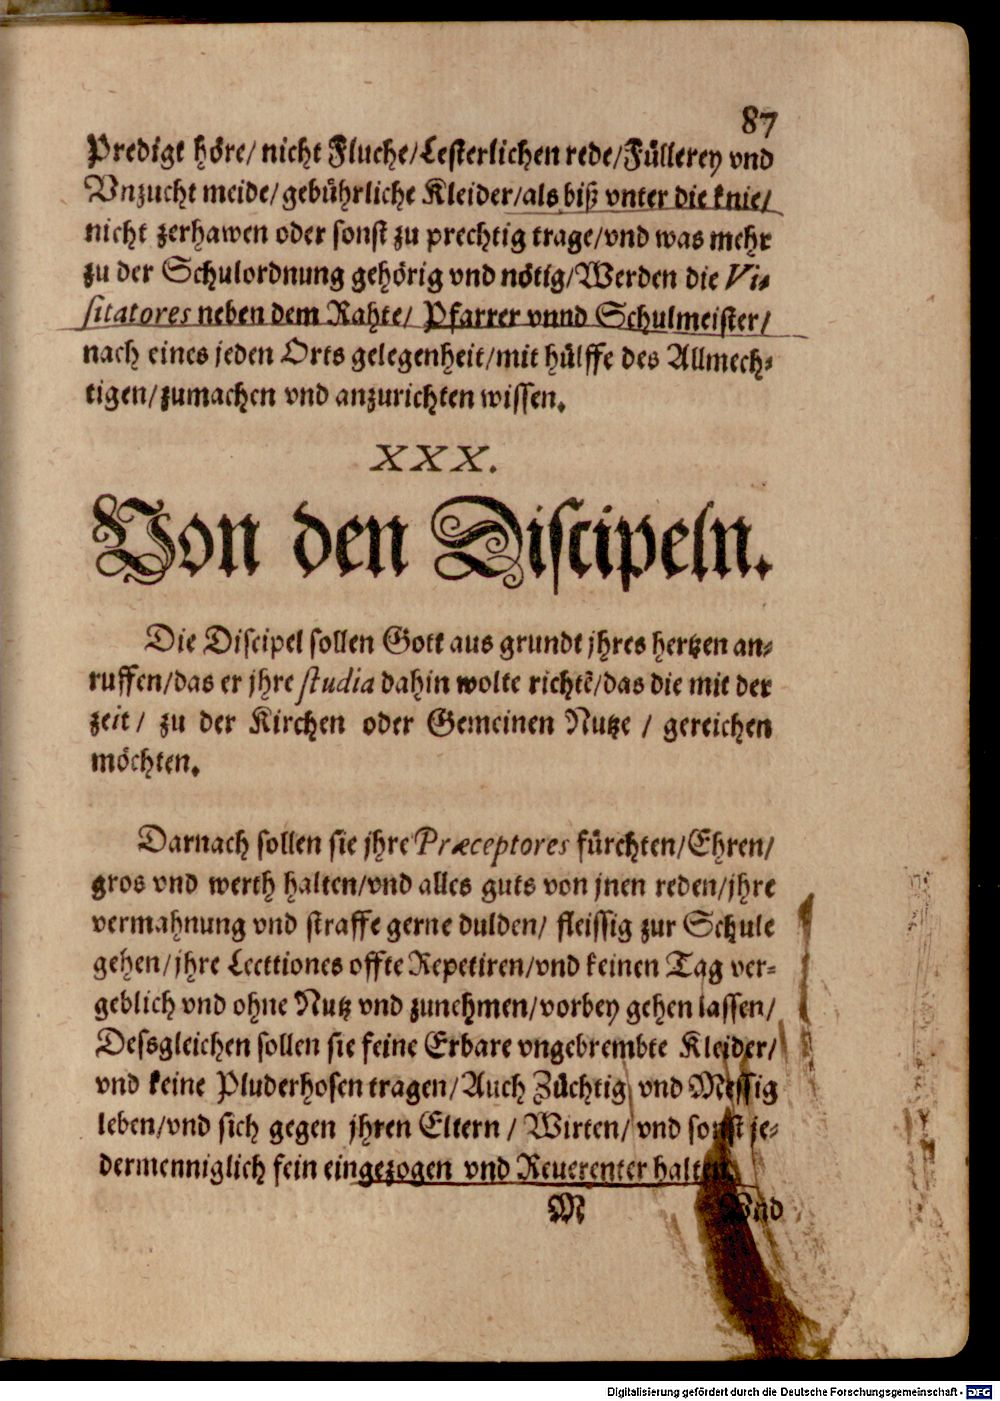 87
Predigt höre/ nicht Fluche/Lesterlichen rede/Füllerey vnd
Vnzucht meide/gebührliche Kleider/als biß vnter die knie/
nicht zerhawen oder sonst zu prechtig trage/vnd was mehr
zu der Schulordnung gehörig vnd nötig/Werden die Vi-
sitatores neben dem Rahte/ Pfarrer vnnd Schulmeister/
nach eines jeden Orts gelegenheit/mit hülffe des Allmech-
tigen/zumachen vnd anzurichten wissen.
XXX.
Von den Discipeln.
Die Discipel sollen Gott aus grundt jhres hertzen an-
ruffen/das er jhre studia dahin wolte richtẽ/das die mit der
zeit/ zu der Kirchen oder Gemeinen Nutze / gereichen
möchten.
Darnach sollen sie jhre Præceptores fürchten/Ehren/
gros vnd werth halten/vnd alles guts von jnen reden/jhre
vermahnung vnd straffe gerne dulden/ fleissig zur Schule
gehen/jhre Lecttiones offte Repetiren/vnd keinen Tag ver-
geblich vnd ohne Nutz vnd zunehmen/vorbey gehen lassen/
Dessgleichen sollen sie feine Erbare vngebrembte Kleider/
vnd keine Pluderhosen tragen/Auch Züchtig vnd Messig
leben/vnd sich gegen jhren Eltern / Wirten/ vnd sonst je-
dermenniglich fein eingezogen vnd Reuerenter halten.
M Vnd
Digitalisierung gefördert durch die Deutsche Forschungsgemeinschaft - DFG